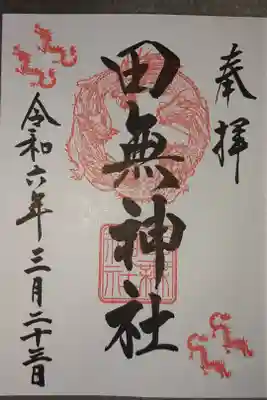 奉拝
田無神社
令和六年三月二十三日